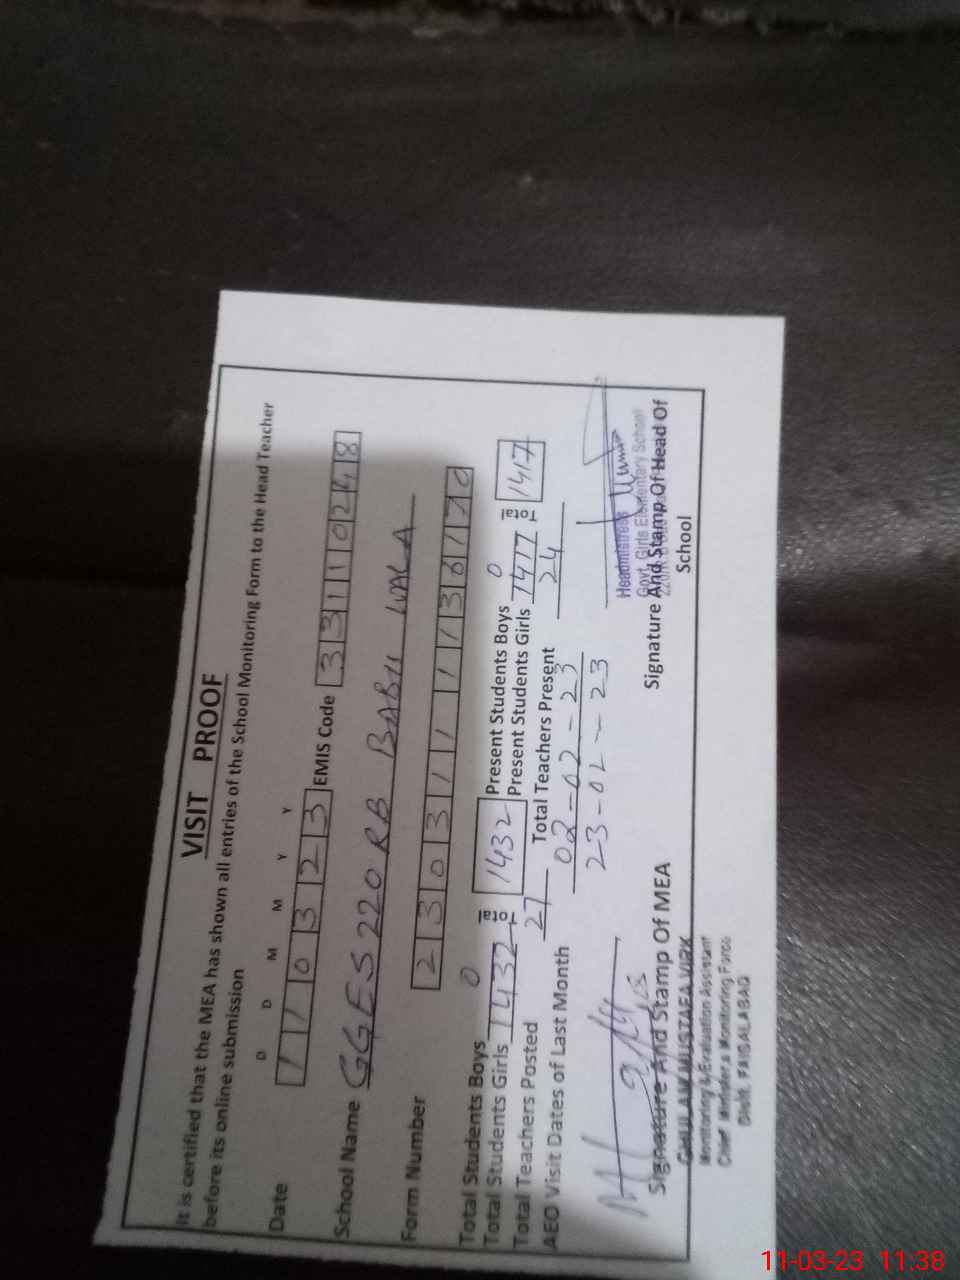 VISIT PROOF
It is certified that the MEA has shown all entries of the School Monitoring Form to the Head Teacher
before its online submission
D D M M Y Y
Date 110323 EMIS Code 33110248
School Name GGES 220 RB BABU WALA
Form Number
Total Students Boys 0 Total 1432 Present Students Boys 0 Total 1417
Total Students Girls 1432 Present Students Girls 1417
Total Teachers Posted 27 Total Teachers Present 24
AEO Visit Dates of Last Month 02-02-23
23-02-23
Headmistress
Govt. Girls Elementary School
Signature And Stamp Of MEA Signature And Stamp Of Head Of
School
GHULAM MUSTAFA VIRK
Monitoring & Evaluation Assistant
Chief Minister's Monitoring Force
Distt. FAISALABAD
11-03-23 11:38